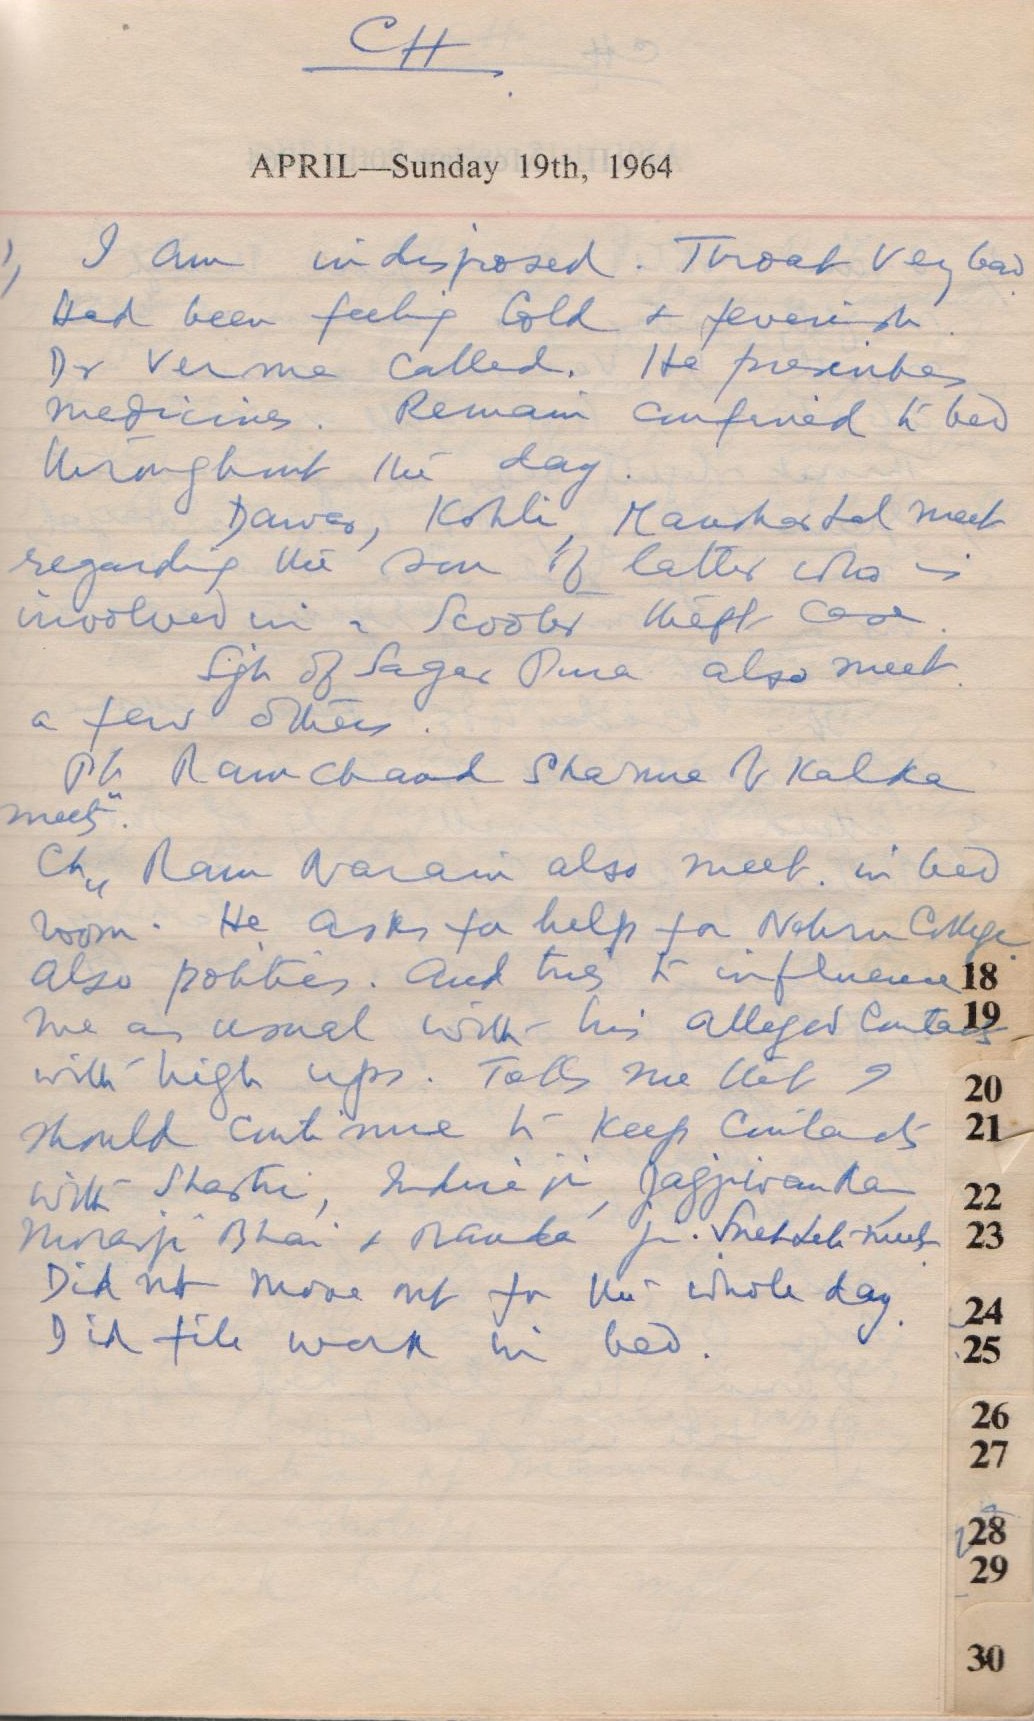 CH
APRIL—Sunday 19th, 1964
1, I am indisposed. Throat very bad.
Had been feeling Cold & feverish.
Dr Verma called. He prescribes
medicines. Remain confined to bed
throughout the day.
Dawar, Kohli, Manohar Lal meet
regarding the son of latter who is
involved in a Scooter theft case.
of Sagar Pura also meet.
a few others.
Pt. Ram Chand Sharma of Kalka
meets.
Ch. Ram Narain also meet. in bed
room. He asks for help for Nehru College.
also politics. And tries to influence
me as usual with his alleged Contacts
with high ups. Tells me that I
should continue to keep Contacts
with Shastri, Indira ji, Jagjiwan Ram,
Morarji Bhai & Nanda ji. Sneh Lata meets
Did not move out for the whole day.
Did file work in bed.
18
19
20
21
22
23
24
25
26
27
28
29
30